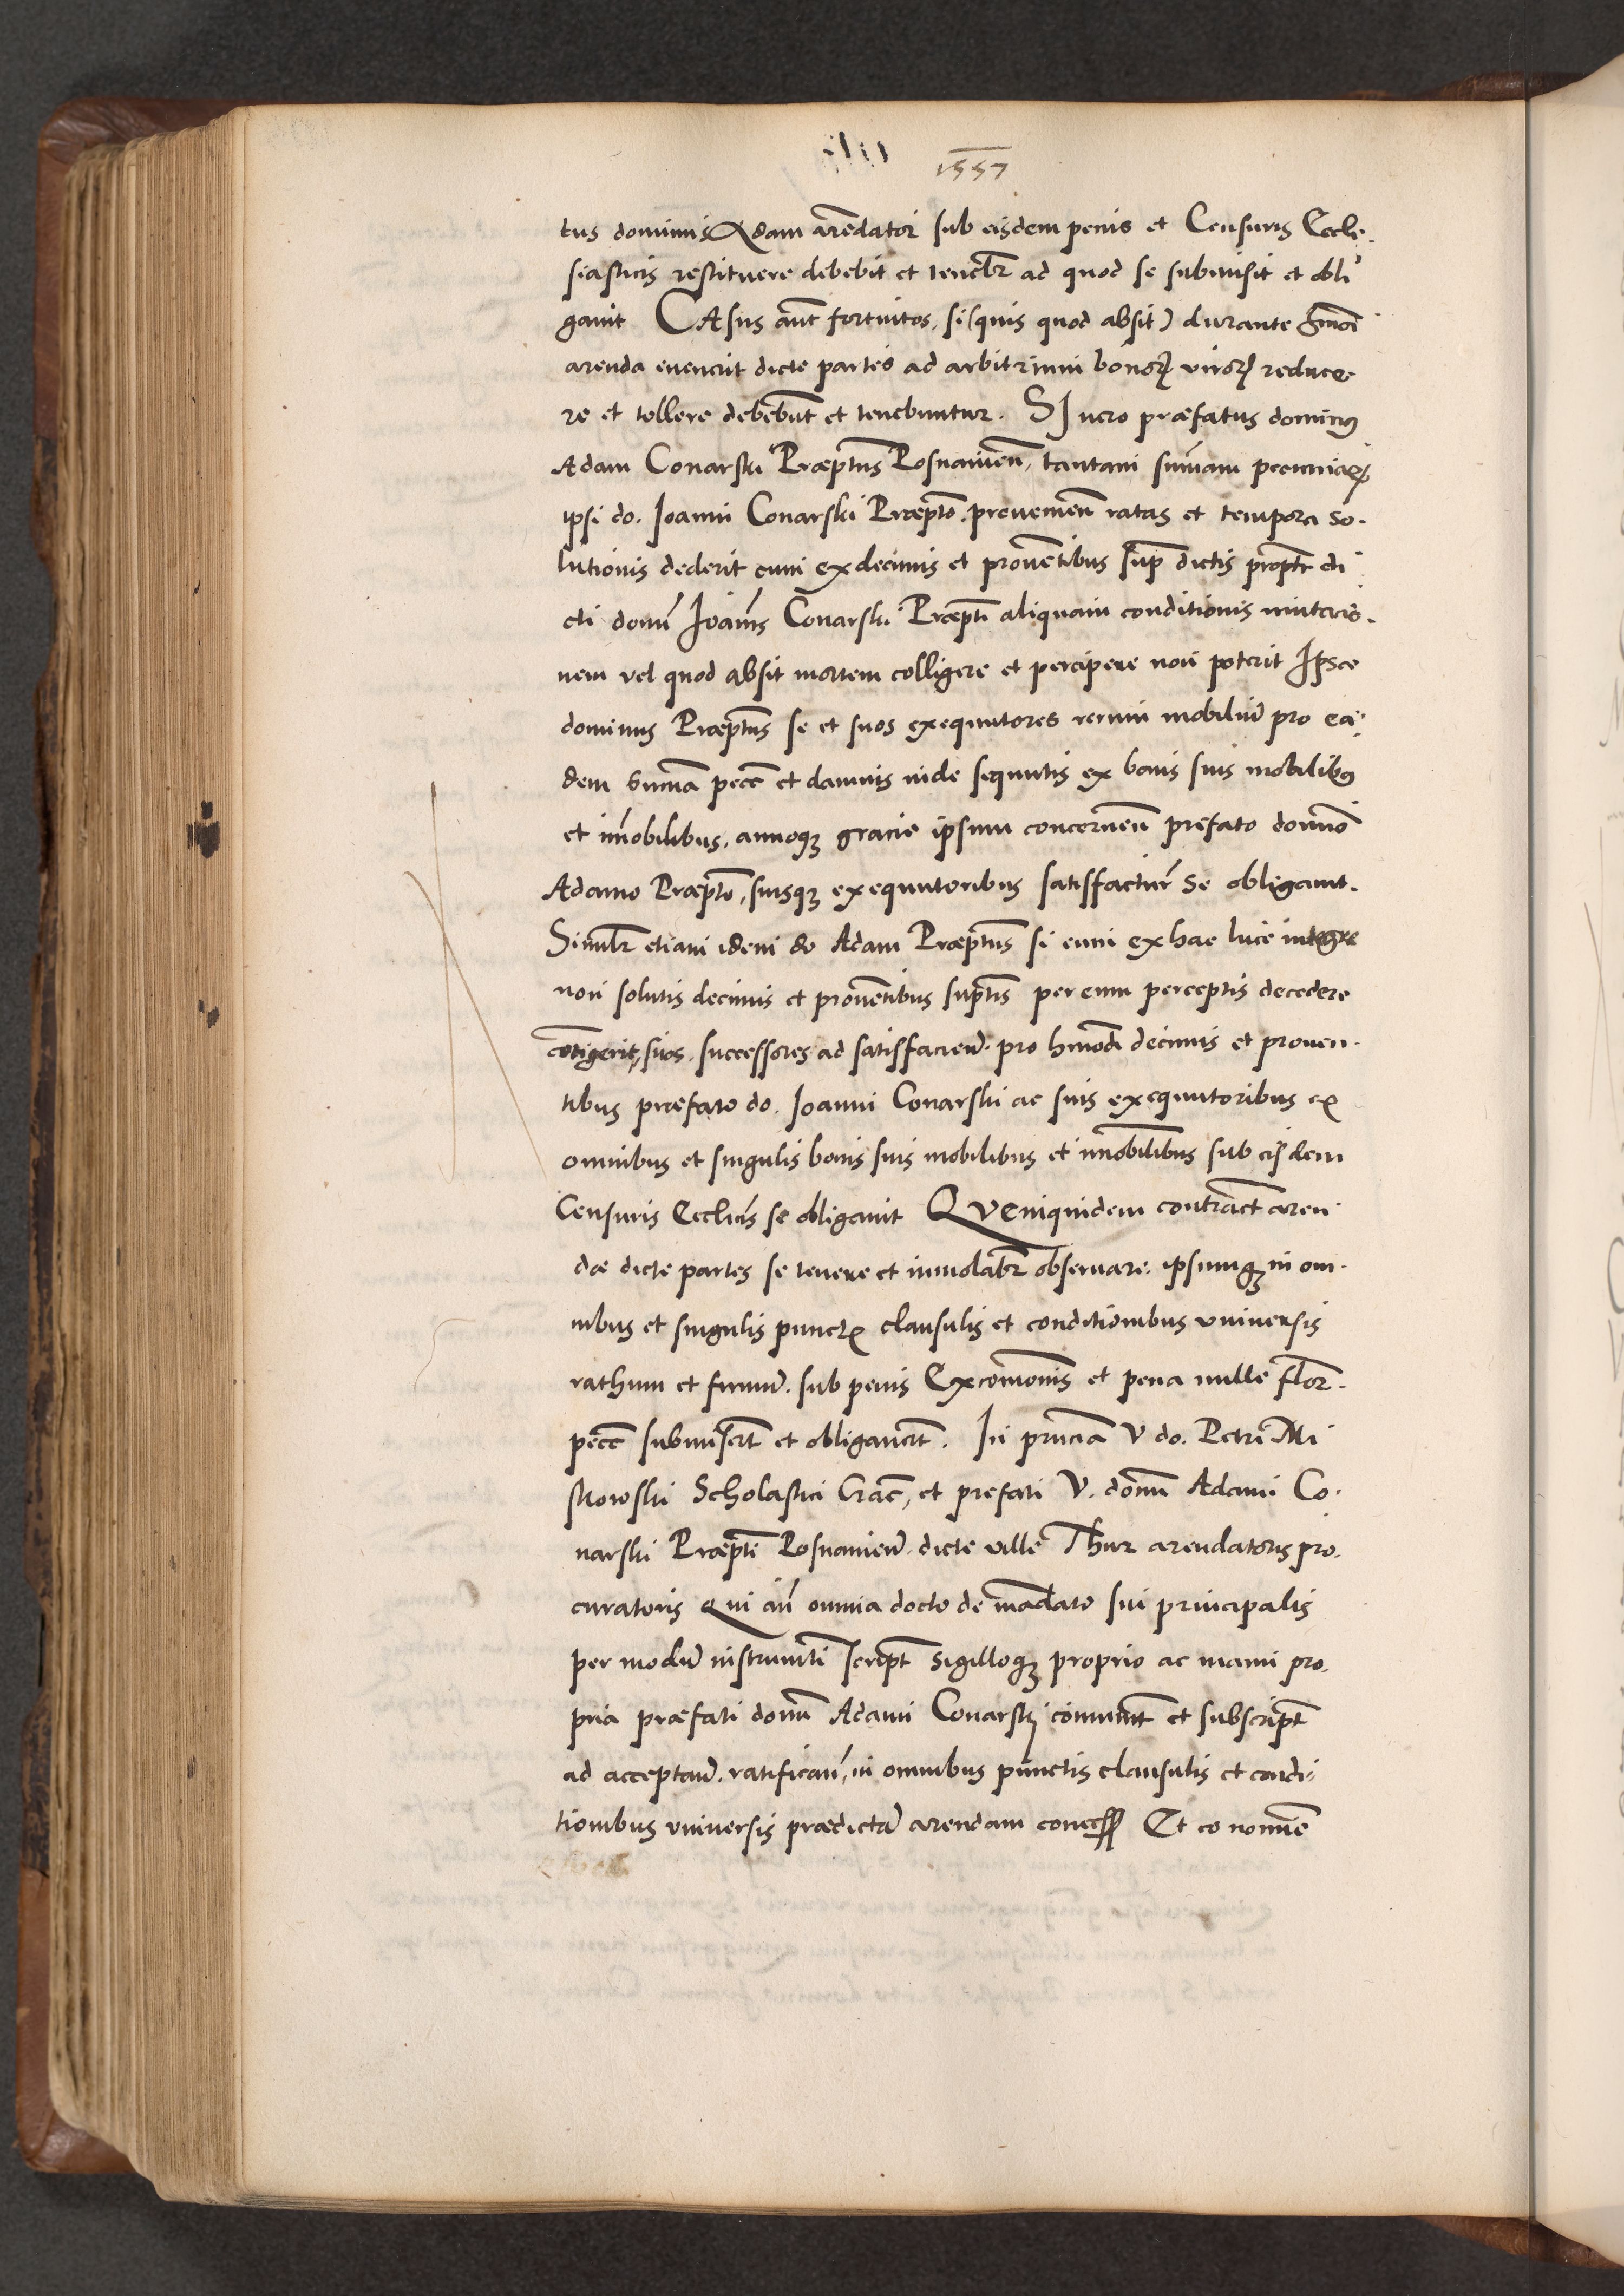 1557
tus dominus Adam arẽdatori sub eisdem penis et Censuris Eccle-
siasticis restituere debebit et tenebr̃ ad quod se submisit et obli
gauit CAsus aũt fortuitos, si (quis quod absit) durante hmõi
arenda euenerit dicte partes ad arbitrium bonorꝝ virorꝝ reduce-
re et tollere debebũt et tenebuntur. SI vero præfatus dominus
Adam Conarski Præptus Posnanień, tantam sum̃am pecuniarꝝ
ipsi do. Ioanni Conarski Præpto. proueneń ratas et tempora so-
lutionis dederit cum ex decimis et prouẽtibus sup̃ dictis propter di
cti domń Ioańis Conarski Præpti aliquam conditionis mutatio-
nem vel quod absit mortem colligere et percipere non poterit Ipse
dominus Præptus se et suos exequutores rerum mobiliũ pro ea-
dem sum̃a pecc̃ et damnis inde sequutis ex bonis suis mobilibus
et im̃obilibus, annoqꝫ gracie ipsum concerneń prefato domno
Adamo Præpto, suisqꝫ exequutoribus satisfactur̃ se obligauit.
Similr̃ etiam idem do Adam Præptus si eum ex hac luce integre
non solutis decimis et prouẽtibus suptis per eum perceptis decedere
cõtigerit, suos successores ad satisfacień pro hmõdi decimis et prouen-
tibus præfato do. Ioanni Conarski ac suis exequutoribus ex
omnibus et singulis bonis suis mobilibus et im̃obilibus sub eisdem
Censuris Ecclicis se obligauit QVemquidem contract̃ aren
dæ dicte partes se tenere et inuiolabr̃ obseruare. ipsumqꝫ in om-
nibus et singulis punctis clausulis et conditionibus vniuersis
rathum et firmũ. sub penis Excõmonis et pena mille flor̃.
pecc̃ submisert̃ et obligauert̃. In prncia V do. Petri Mi
skowski Scholastici Crac̃, et prefati V. domń Adami Co-
narski Præpti Posnanień dicte ville Thur arendatoris pro-
curatoris Qui añ omnia docto de mãdato sui principalis
per modũ instrum̃ti script̃ sigilloqꝫ proprio ac manu pro-
pria præfati domń Adami Conarskj com̃unit̃ et subscript̃
ad acceptań. ratificań, in omnibus punctis clausulis et condi-
tionibus vniuersis prædictã arendam concess̃ Et eo nomine